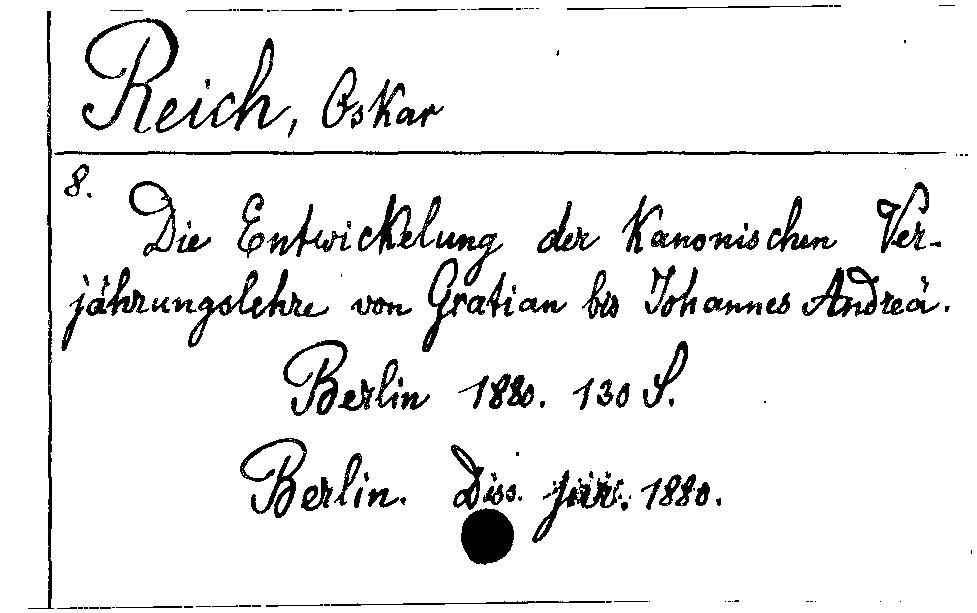 Reich, Oskar
8.
Die Entwickelung der Kanonischen Ver-
jährungslehre von Gratian bis Johannes Andreä.
Berlin 1880. 130 S.
Berlin. Diss. jur. 1880.